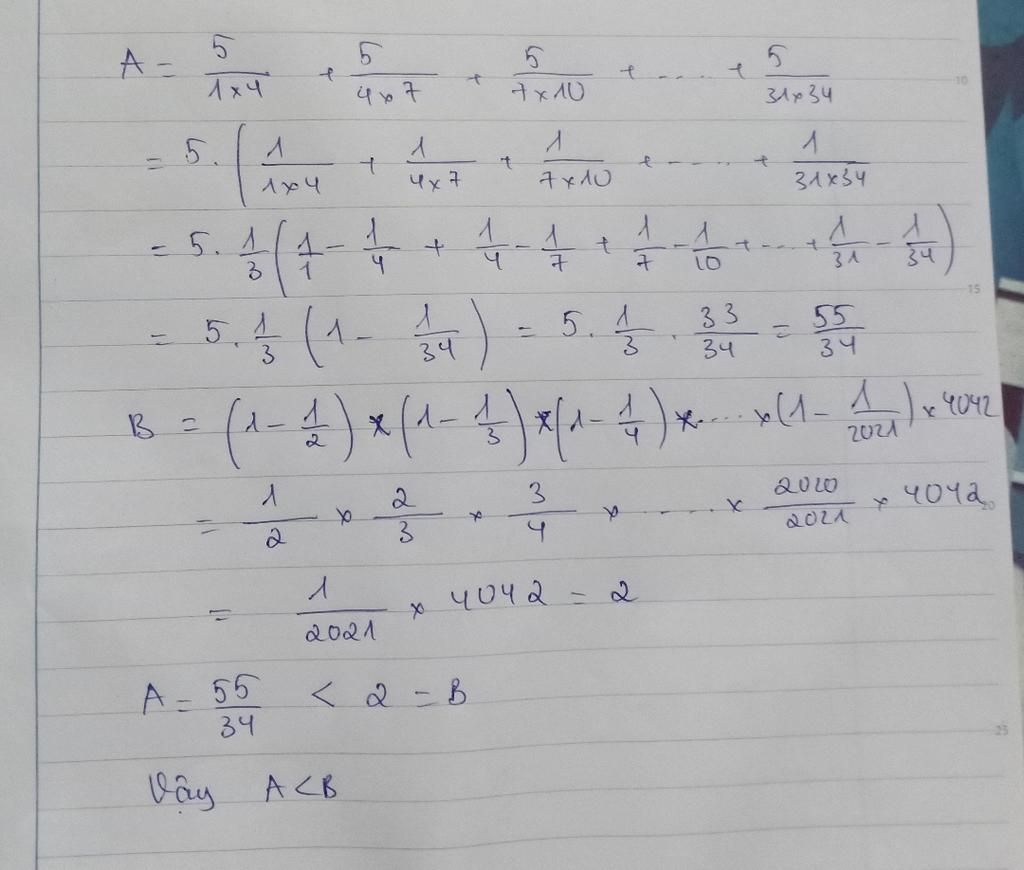 A = 5/1×4 + 5/4×7 + 5/7×10 + .... + 5/31×34
= 5. (1/1×4 + 1/4×7 + 1/7×10 + ..... + 1/31×34
= 5. 1/3 (1/1 - 1/4 + 1/4 - 1/7 + 1/7 - 1/10 + ... + 1/31 - 1/34)
= 5. 1/3 (1 - 1/34) = 5. 1/3 . 33/34 = 55/34
B = (1 - 1/2) × (1 - 1/3) × (1 - 1/4) × .... × (1 - 1/2021) × 4042
= 1/2 × 2/3 × 3/4 × ..... × 2020/2021 × 4042
= 1/2021 × 4042 = 2
A = 55/34 < 2 = B
Vậy A < B
10
15
20
25